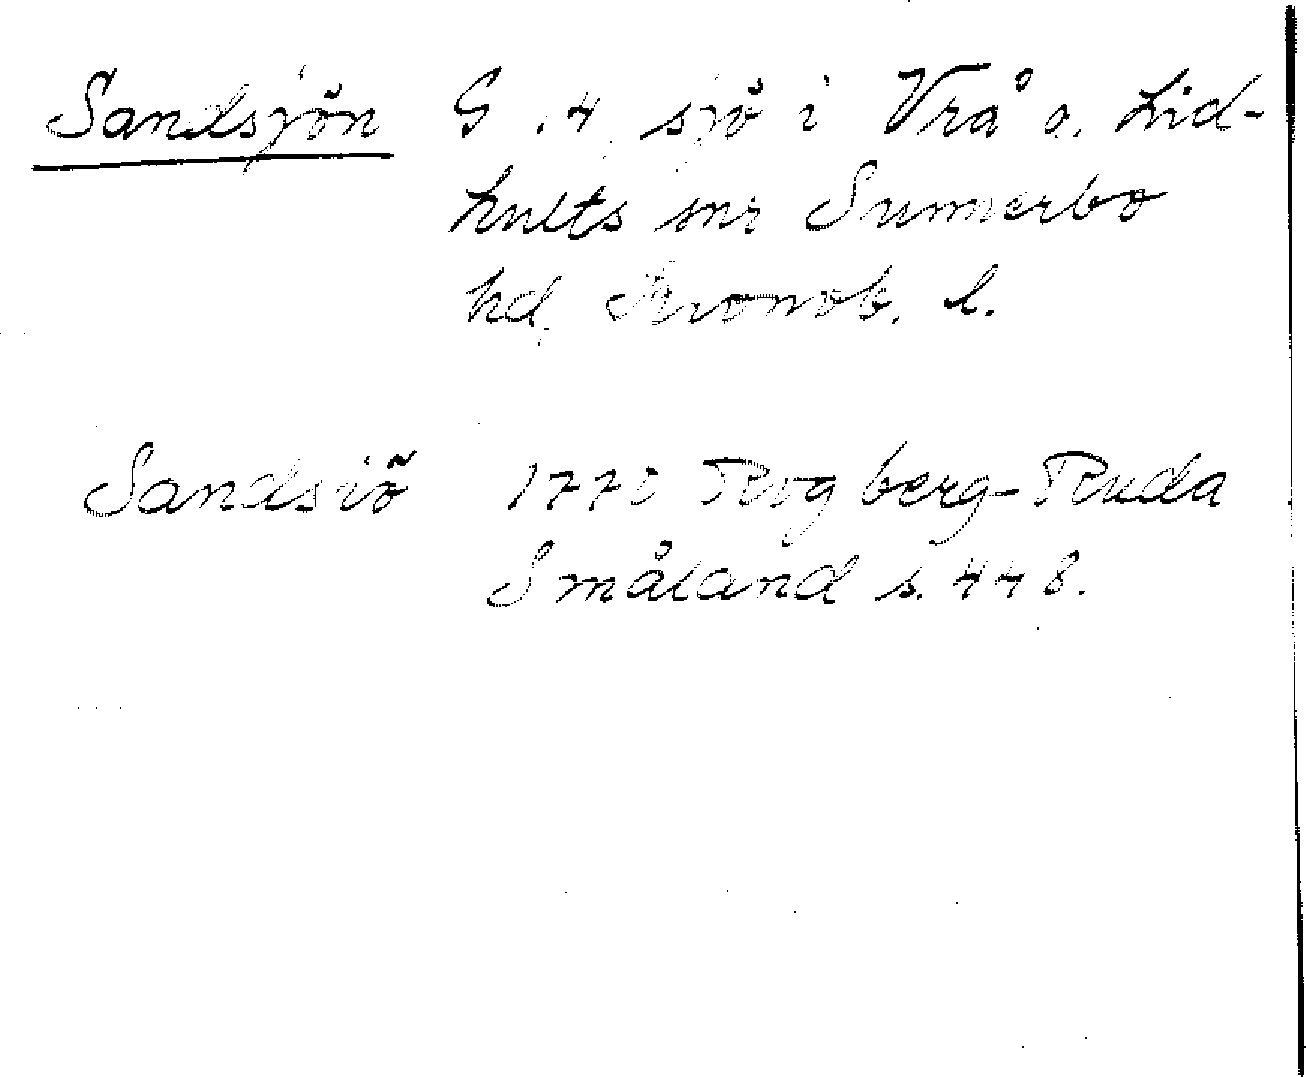 Sandsjön G .4. sjö i Vrå o. Lid-
hults snr Sunnerbo
hd. Kronob. l.
Sandsiö 1770 Rogberg-Ruda
Småland s. 448.